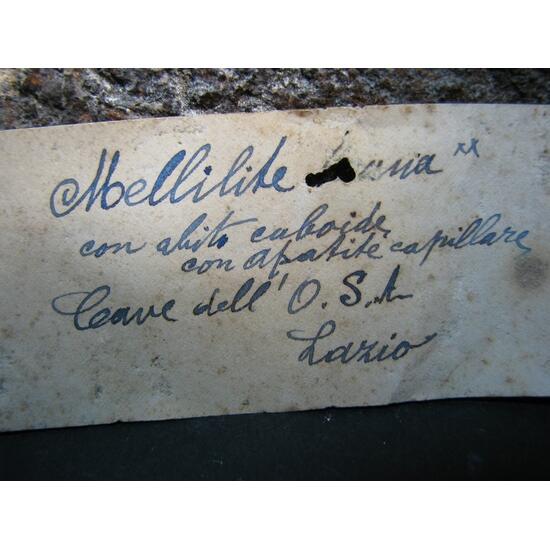 Mellilite xx
con abito cuboide
con apatite capillare
Cave dell' O.S.A
Lazio